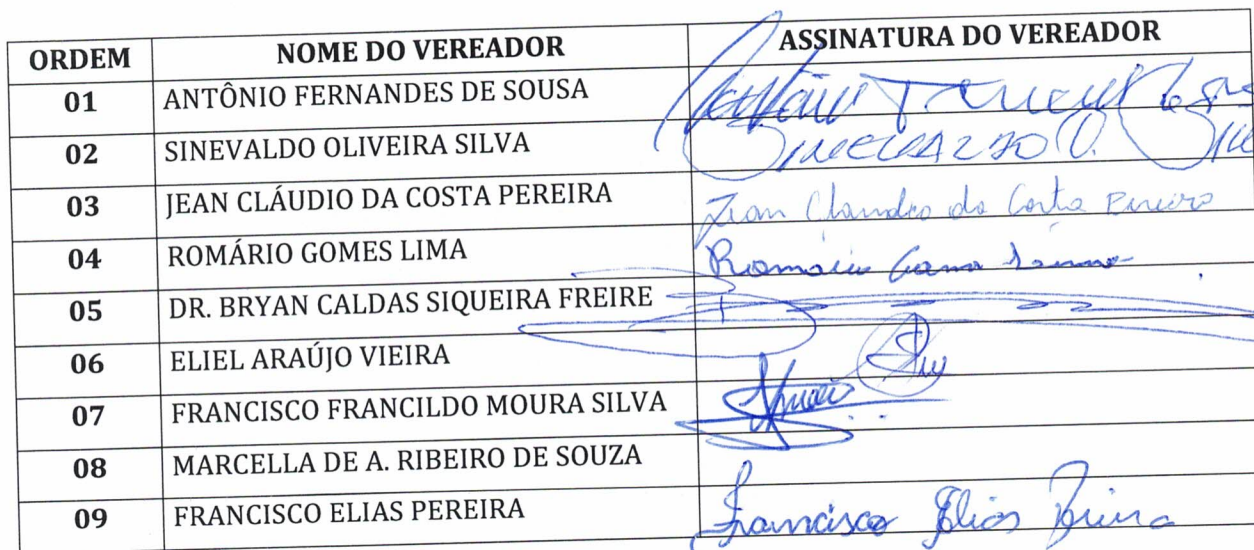 ORDEM NOME DO VEREADOR ASSINATURA DO VEREADOR
01 ANTÔNIO FERNANDES DE SOUSA
02 SINEVALDO OLIVEIRA SILVA
03 JEAN CLÁUDIO DA COSTA PEREIRA Jean Claudio da Costa Pereira
04 ROMÁRIO GOMES LIMA Romário
05 DR. BRYAN CALDAS SIQUEIRA FREIRE
06 ELIEL ARAÚJO VIEIRA
07 FRANCISCO FRANCILDO MOURA SILVA
08 MARCELLA DE A. RIBEIRO DE SOUZA
09 FRANCISCO ELIAS PEREIRA Francisco Elias Pereira